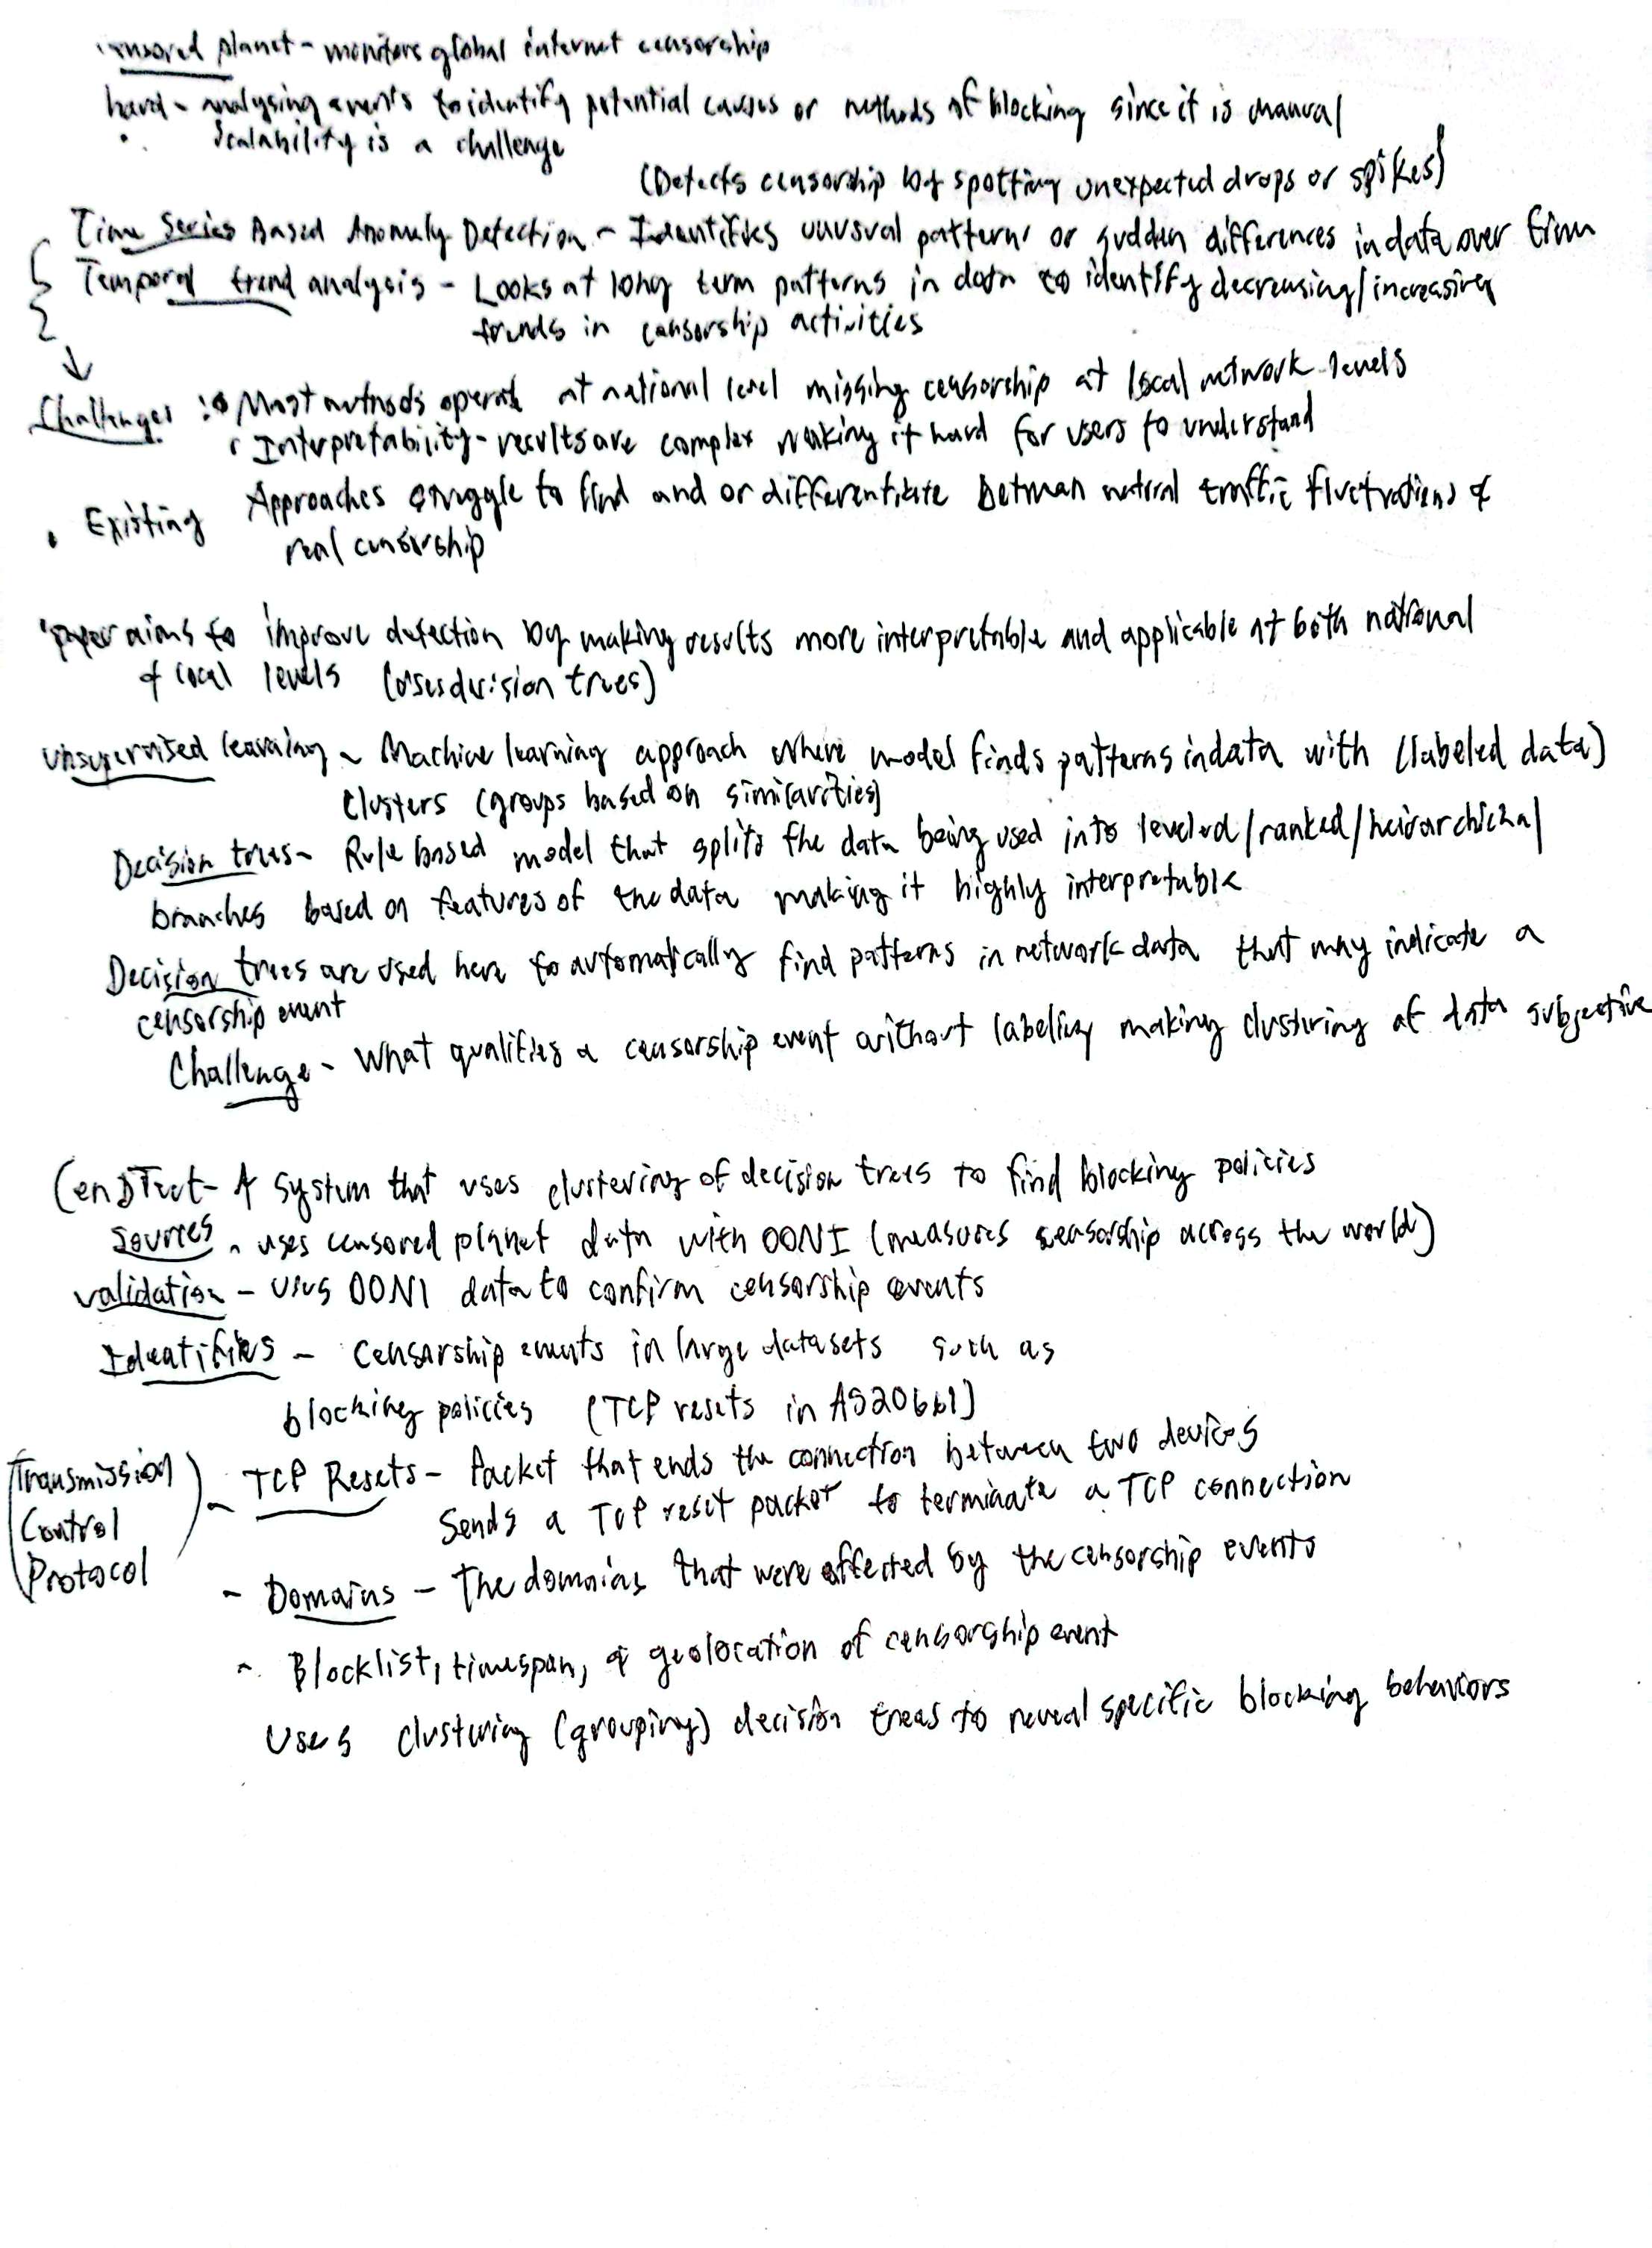 planet - monitors global internet censorship
hard - analysing events to identify potential causes or methods of blocking since it is manual
• Scalability is a challenge
(Detects censorship by spotting unexpected drops or spikes)
Time Series Based Anomaly Detection - Identifies unusual patterns or sudden differences in data over time
Temporal trend analysis - Looks at long term patterns in data to identify decreasing/increasing
trends in censorship activities
Challenges : • Most methods operate at national level missing censorship at local network levels
• Interpretability - results are complex making it hard for users to understand
• Existing Approaches struggle to find and or differentiate between natural traffic fluctuations &
real censorship
• paper aims to improve detection by making results more interpretable and applicable at both national
& local levels (uses decision trees)
Unsupervised learning - Machine learning approach where model finds patterns in data with (labeled data)
Clusters (groups based on similarities)
Decision trees - Rule based model that splits the data being used into leveled/ranked/heirarchichal
branches based on features of the data making it highly interpretable
Decision trees are used here to automatically find patterns in network data that may indicate a
censorship event
Challenge - What qualifies a censorship event without labeling making clustering of data subjective
CenDTect - A system that uses clustering of decision trees to find blocking policies
Sources - uses censored planet data with OONI (measures censorship across the world)
validation - uses OONI data to confirm censorship events
Identifies - Censorship events in large datasets such as
blocking policies (TCP resets in AS20661)
(Transmission Control Protocol) - TCP Resets - Packet that ends the connection between two devices
Sends a TCP reset packet to terminate a TCP connection
- Domains - The domains that were affected by the censorship events
- Blocklist, timespan, & geolocation of censorship event
Uses clustering (grouping) decision trees to reveal specific blocking behaviors